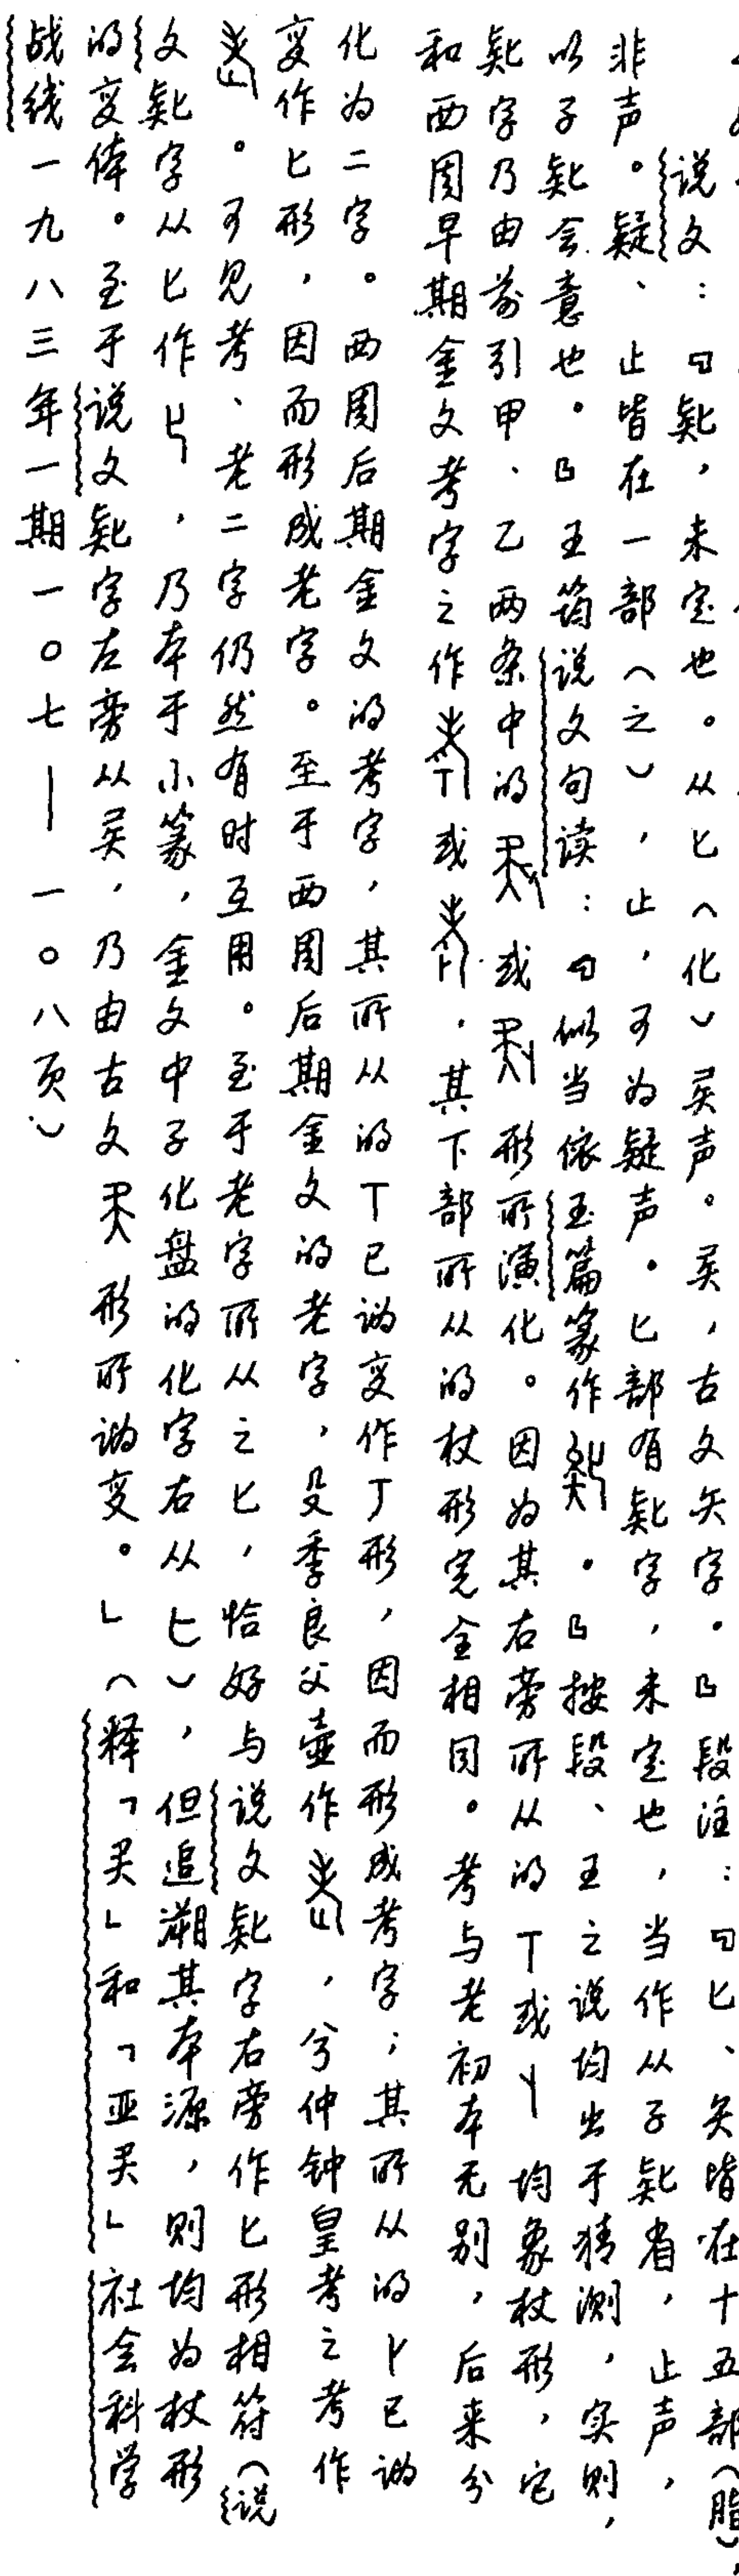 说文：「𠤕，未定也。从匕（化）㠱声。㠱，古文矢字。」段注：「匕、矢皆在十五部（脂），
非声。疑、止皆在一部（之），止，可为疑声。匕部有𠤕字，未定也，当作从子𠤕省，止声，
以子𠤕会意也。」王筠说文句读：「似当依玉篇篆作。」按段、王之说均出于猜测，实则，
𠤕字乃由前引甲、乙两条中的或形所演化。因为其右旁所从的丅或丫均象杖形，它
和西周早期金文考字之作或，其下部所从的杖形完全相同。考与老初本无别，后来分
化为二字。西周后期金文的考字，其所从的丅已讹变作丁形，因而形成考字；其所从的⺊已讹
变作匕形，因而形成老字。至于西周后期金文的老字，殳季良父壶作，兮仲钟皇考之考作
。可见考、老二字仍然有时互用。至于老字所从之匕，恰好与说文𠤕字右旁作匕形相符（说
文𠤕字从匕作，乃本于小篆，金文中子化盘的化字右从匕），但追溯其本源，则均为杖形
的变体。至于说文𠤕字左旁从㠱，乃由古文形所讹变。」（释「」和「亚」社会科学
战线一九八三年一期一〇七——一〇八页）